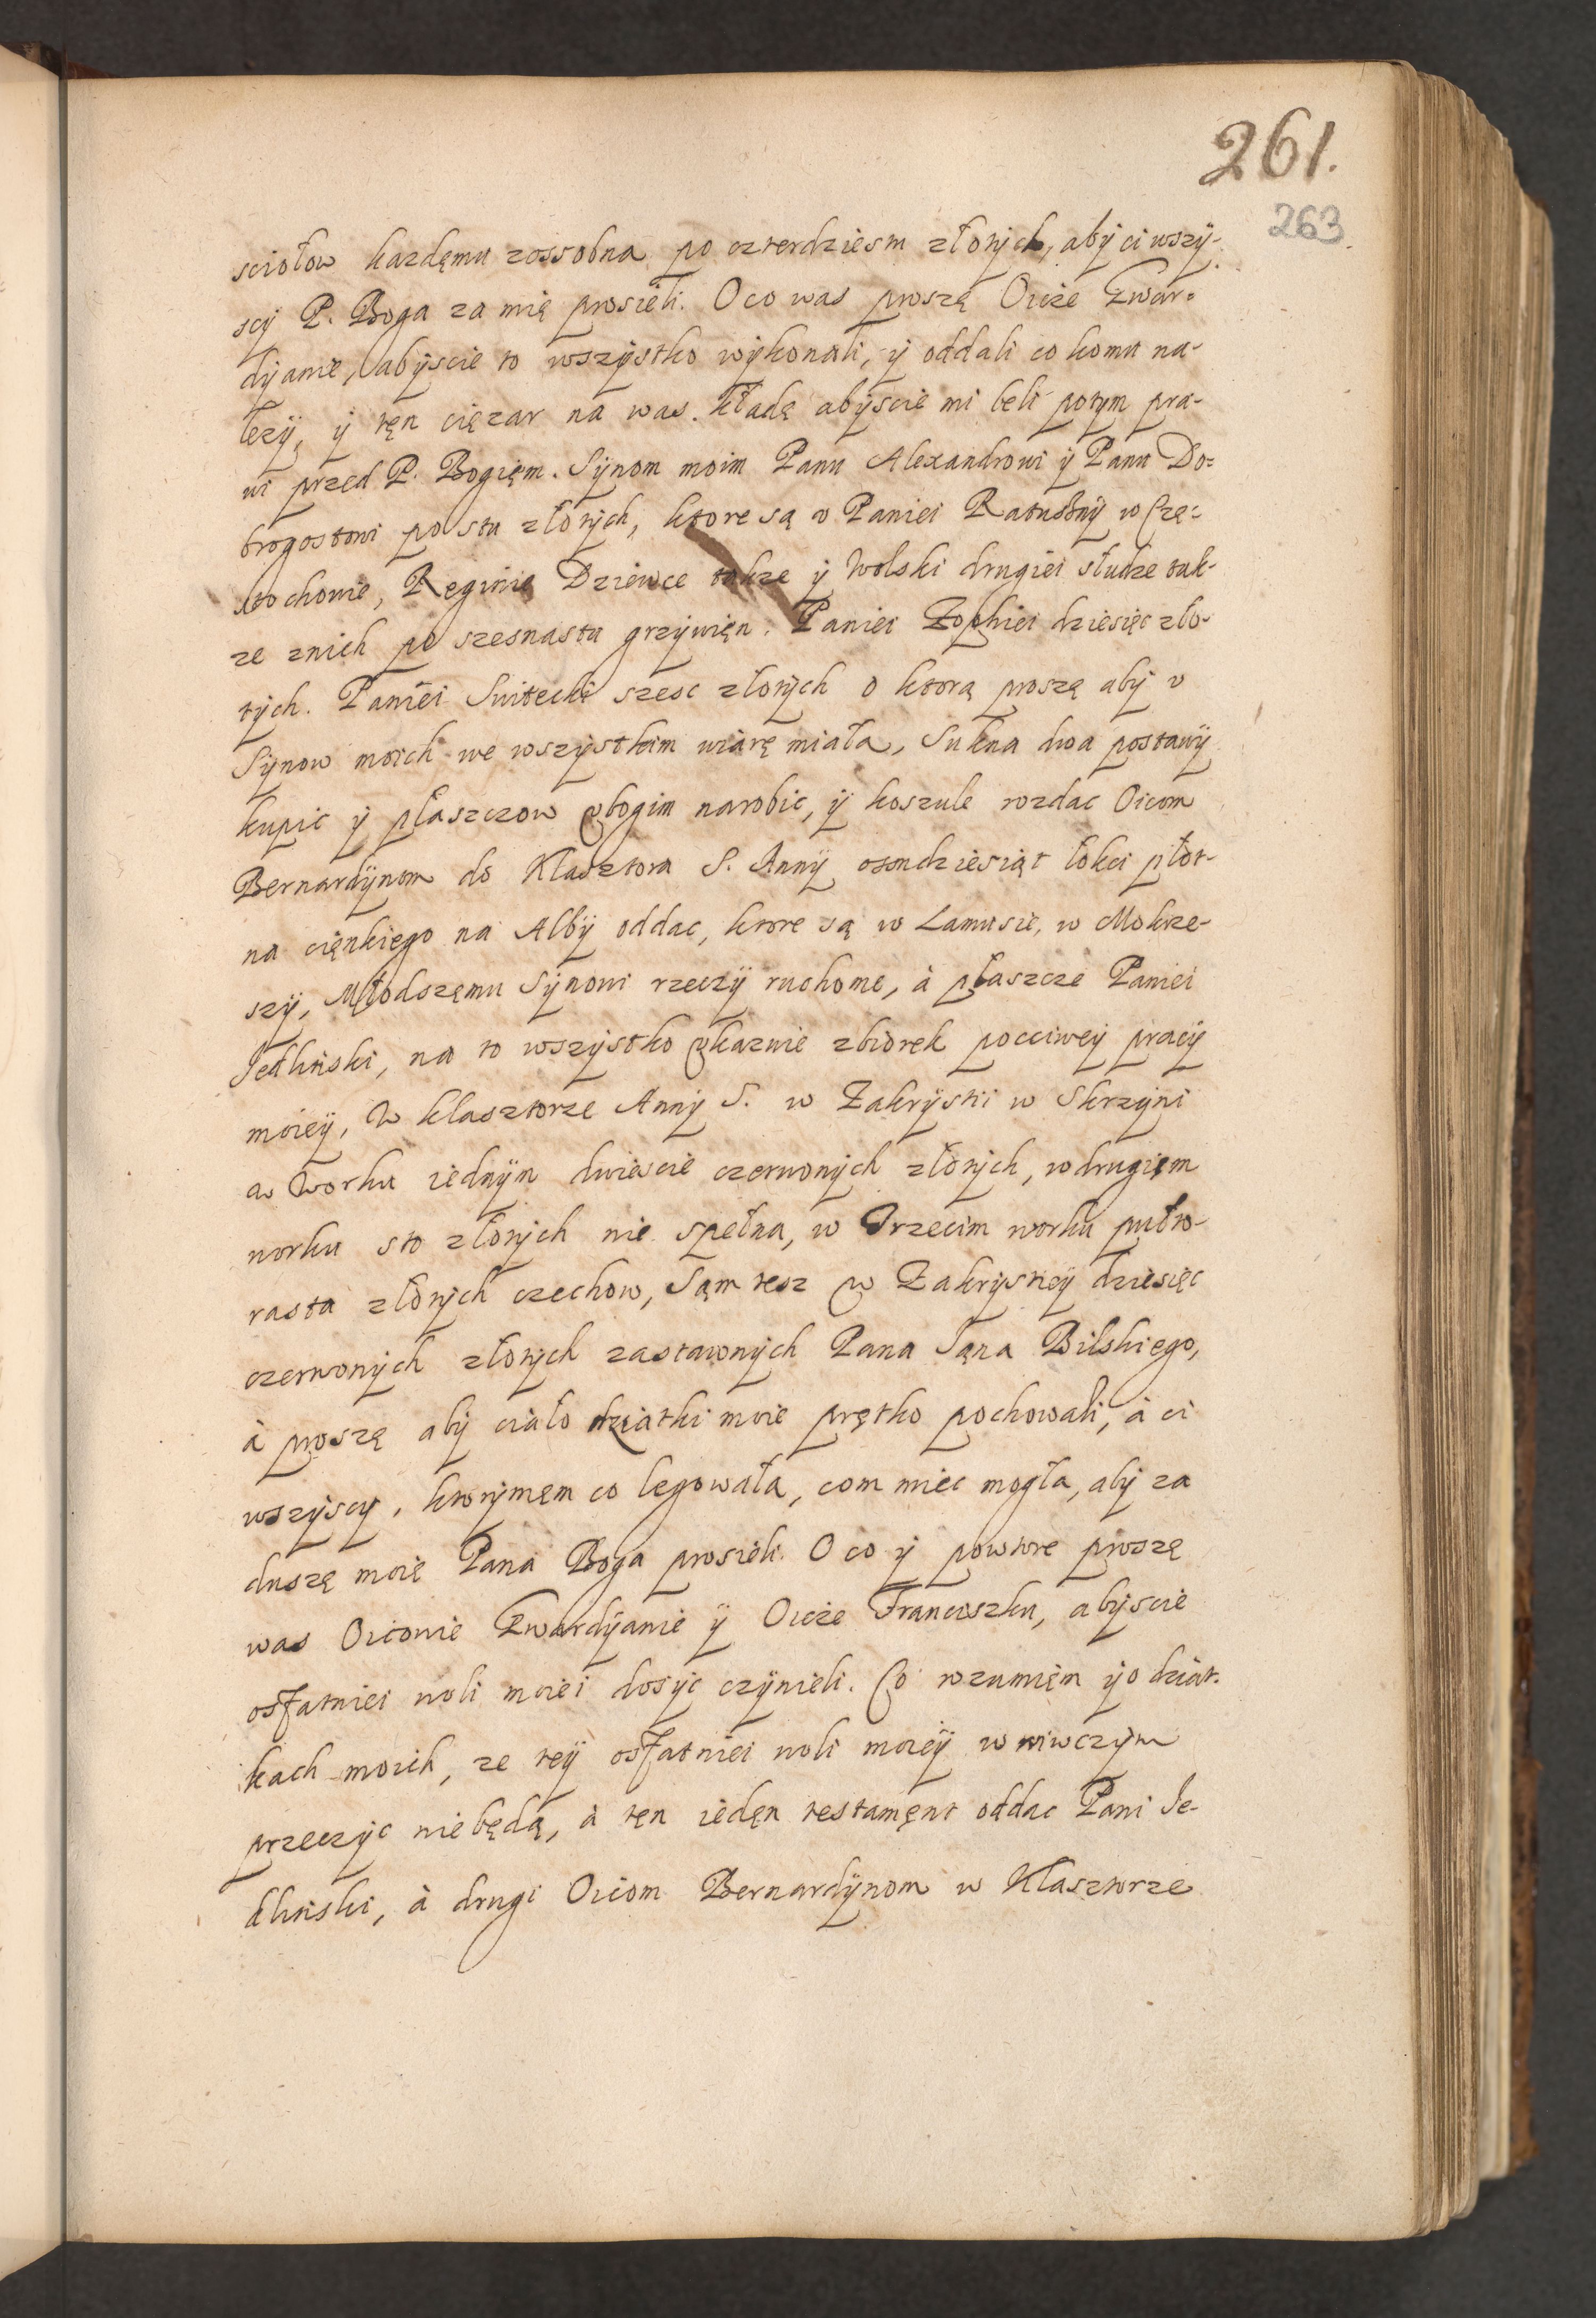 261.
263
sciołow kazdęmu zossobna po czterdziesm złotych, aby ci wszy-
scy P. Boga za mię prosieli. O co was proszę Oicże Gwar-
dyanie, abyscie to wszystko wykonali, y oddali co komu na-
lezy, y tęn cięzar na was kładę abyscie mi beli potym pra-
wi przed P. Bogięm. Synom moim Panu Alexandrowi y Panu Do-
brogostowi po stu złotych, ktore są v Paniei Ratuszny w Czę-
stochowie, Reginię Dziewce takze y Wolski drugiei słudze tak-
ze znich po szesnastu grzywięn. Paniei Zophiei dziesięc zło-
tych. Paniei Switecki szesc złotych o ktorą proszę aby v
Synow moich we wszystkim wiarę miała, Sukna dwa postawy
kupic y płaszczow vbogim narobic, y koszule rozdac Oicom
Bernardynom do Klasztora S. Anny osmdziesiąt łokci płot-
na cięnkiego na Alby oddac, ktore są w Lamusie, w Mokrze-
szy, Młodszęmu Synowi rzeczy ruchome, à płaszcze Paniei
Jedlinski, na to wszystko vkazuie zbiorek pocciwey pracy
moiey, W klasztorze Anny S. w Zakrystii w Skrzyni
w Worku iednym dwiescie czerwonych złotych, w drugięm
worku sto złotych nie spełna, w Trzecim worku pułto-
rasta złotych czechow, Tąm tesz w Zakrystiey dziesięc
czerwonych złotych zastawonych Pana Jąna Bilskiego,
à proszę aby ciało dziatki moie prętko pochowali, à ci
wszyscy, ktorymęm co legowała, com miec mogła, aby za
duszę moię Pana Boga prosieli. O co y powtore proszę
was Oicowie Gwardyanie y Oicże Franciszku, abyscie
ostatniei woli moiei dosyc czynieli. Co rozumięm y o dziat-
kach moich, ze tey ostatniei woli moiey w niwczym
przeczyc nie będą, à tęn iedęn testamęnt oddac Pani Je-
dlinski, à drugi Oicom Bernardynom w Klasztorze